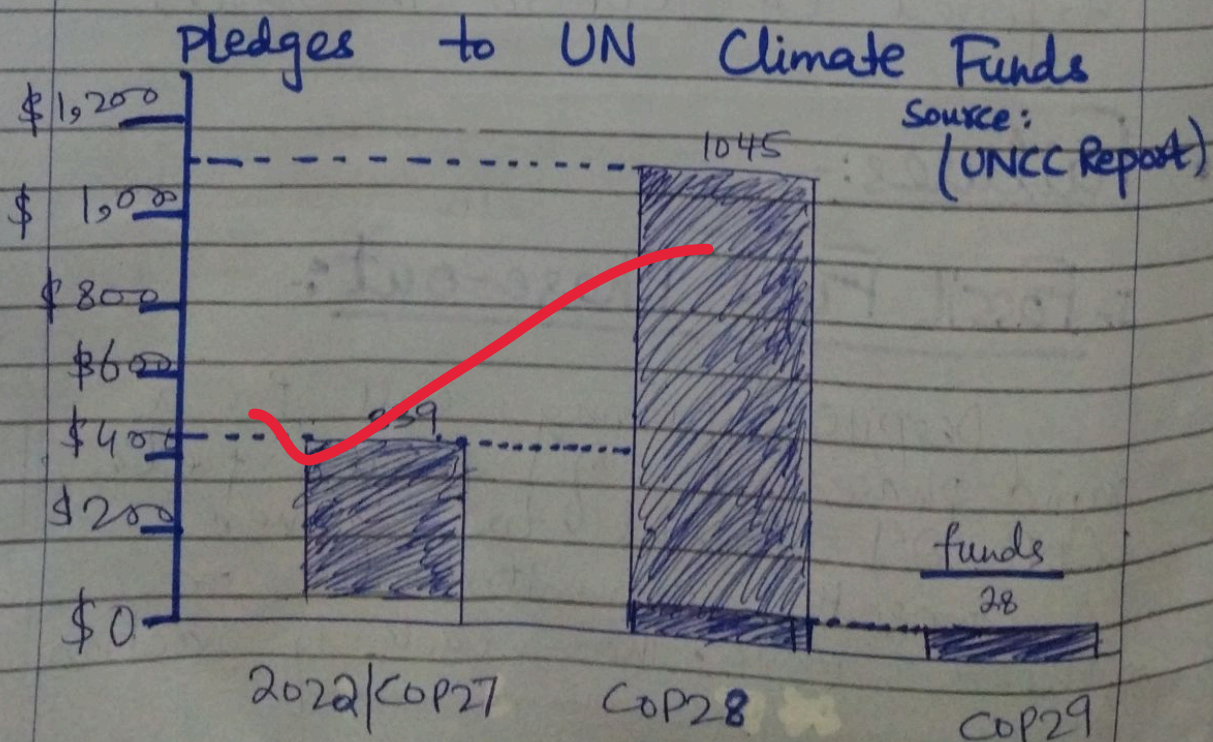 Pledges to UN Climate Funds
Source:
(UNCC Report)
$1,200
1045
$ 1,000
$800
$600
$400
$200
funds
28
$0
2022/COP27
COP28
COP29